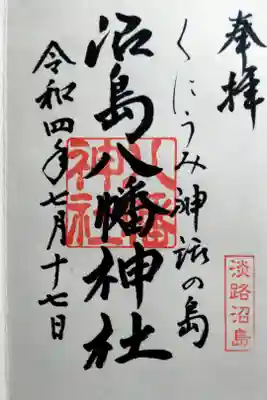 奉拝
くにうみ神話の島
沼島八幡神社
八幡神社
令和四年七月十七日
淡路沼島